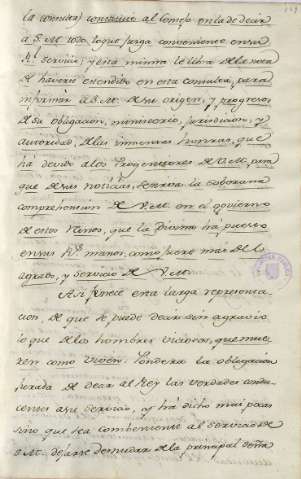 la consulta) constituido al Consejo en la de decir
a S. M. todo lo que juzga conveniente en su
R.l servicio; y esta misma le libra de la nota
de haverse estendido en esta consulta, para
informar a S. M. de su origen, y progresos
de su obligacion, ministerio, jurisdicion, y
autoridad, de las inmensas honras, que
há devido a los Progenitores de V. M. para
que de sus noticias, se la soberana
comprehension de V. M. en el govierno
de estos Reinos, que la Divina há puesto
en sus R.s manos, como fuere mas de su
agrado, y servicio de V. M.
Asi fenece esta larga representa
cion, de que se puede decir sin agravio
lo que de los hombres viciosos, que mue
ren como viven. Pondera la obligacion
jurada de decir al Rey las verdades condu
centes a su servicio, y há dicho mui pocas
sino que sea combeniente al servicio de
S. M. dejarse desnudar de la principal